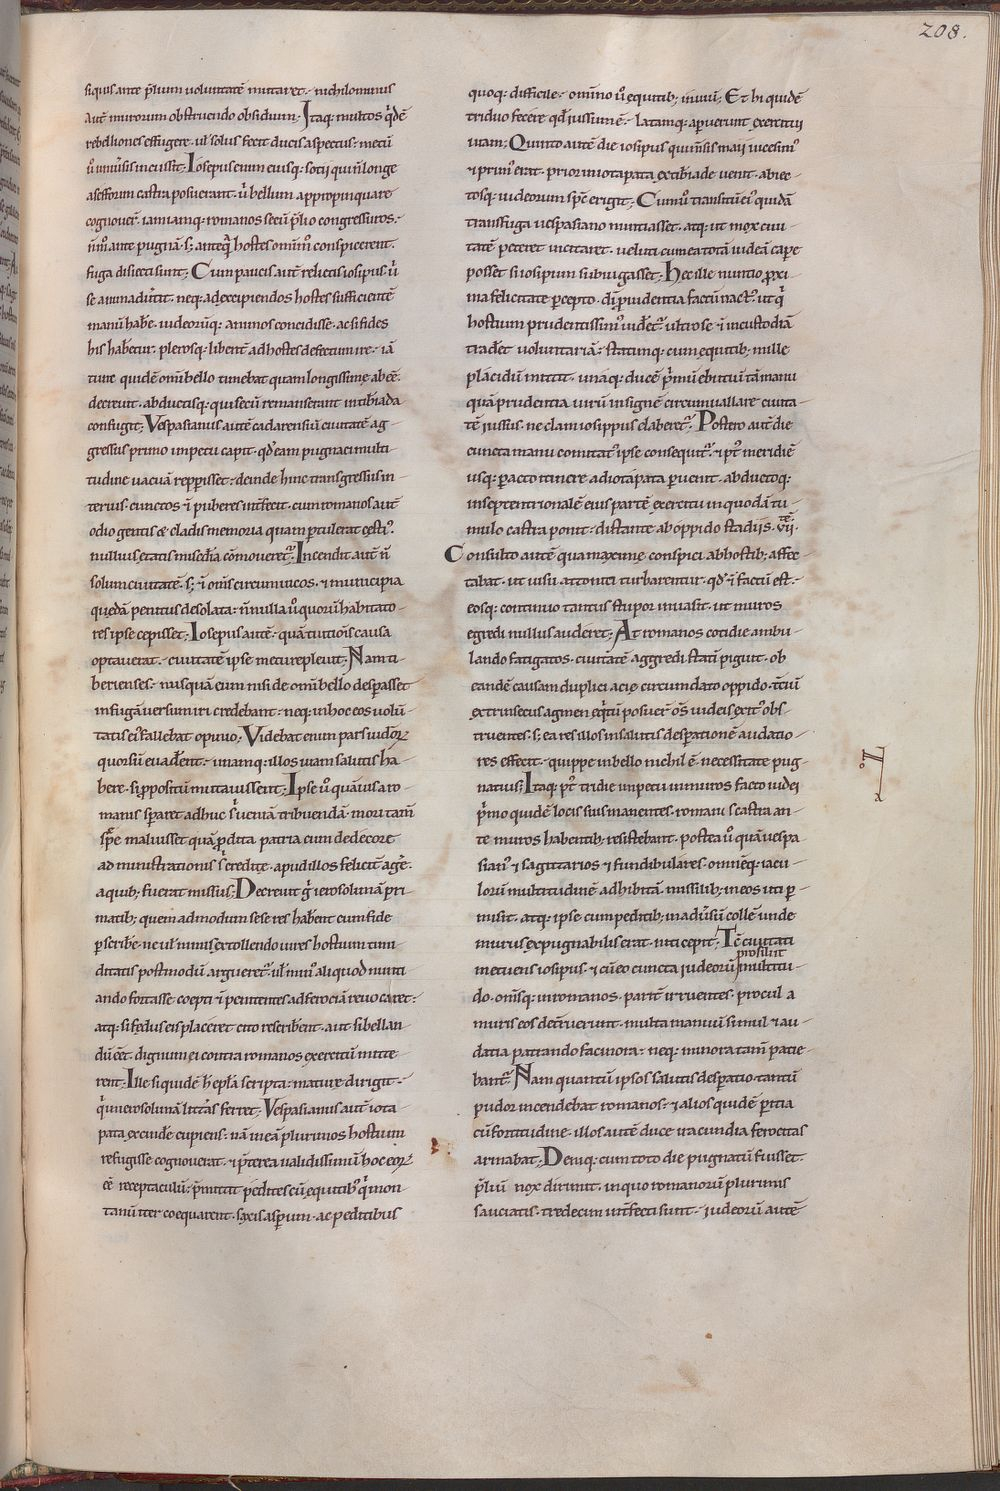 208.
siquis ante p̄lium uoluntatē mutaret. nichilominus
autē murorum obstruendo obsidium; Itaq; multos q̇dē
rebelliones effugere. ul̄ solus fecit ducis aspectus. metū
ů uniūsis incussit; Iosepus enim eiusq; sotii qui ñ longe
a sefforim castra posuerant. ů bellum appropinquare
cognouer̄. iam iamq; romanos secū p̄lio congressuros.
ñ m̊ ante pugnā. s; anteq̄ hostes omnī conspicerent.
fuga disiecti sunt; Cum paucis autē relictis iosipus ů
se animaduertit. neq; ad excipiendos hostes sufficientē
manū habe̅. iudeorūq; animos concidisse. ac si fides
his habetur. plerosq; libent̄ ad hostes defecturum ire. iā
tunc quidē omī bello timebat quam longissime abeē.
decreuit. abductisq; qui secū remanserant in tibiada
confugit; Vespasianus autē gadarensiū ciuitatē ag-
gressus primo impetu capit. qđ eam pugnaci multi-
tudine uacuā repperisset. deinde hinc transgressus in-
terius. cunctos ī puberes int̄fecit. cum romanos aut̄
odio gentis & cladis memoria quam ptulerat cestī.
nullius etatis misedia cōmoueret̄; Incendit aut̄ ñ
solum ciuitatē. s; ī om̄s circum uicos. & municipia
quedā penitus desolata. ñ nulla ů quorū habitato-
res ipse cepisset; Iosepus autē. quā tuitiōis causa
optauerat. ciuitatē ipse metu repleuit; Nam ti-
berienses. nusquā eum nisi de omī bello despasset
in fugā uersum iri credebant. neq; in hoc eos uolū-
tatis ei fallebat opinio; Videbat enim pars iudeoꝝ
quorsū euadent. unamq; illos uiam salutis ha-
bere. si ppositū mutauissent; Ipse ů quāuis a ro-
manis sparet adhuc s̄ ueniā tribuendā. mori tam̄
sepe maluisset quā pdita patria cum dedecore
administrationis s̄ credite. apud illos felicit̄ age̅.
a quib; fuerat missus; Decreuit ḡ ierosolimā pri-
matib; quem admodum sese res habent cum fide
p scribe̅. ne ul̄ nimis extollendo uires hostium timi-
ditatis post modū argueret̄. ul̄ min̊ aliquod nunti-
ando fortasse coepti ī penitentes ad ferociā reuocaret.
atq; si fedus eis placeret cito rescribent. aut si bellan-
dū eēt. dignum ei contra romanos exercitū mitte-
rent; Ille siquidē h eplā scripta. mature dirigit.
q̇ in ierosolimā litt̄as ferret; Vespasianus aut̄ iota-
pata excinde̅ cupiens. nā in eā plurimos hostium
refugisse cognouerat. & p̄terea ualidissimū hoc eoꝝ
eē receptaculū. p̄mittit pedites cū equitibȝ q̇ mon-
tanū iter coequarent. saxis asperum. ac peditibus
quoq; difficile. omnīo ů equitib; inuiū; Et hi quidē
triduo fecere qđ iussum ē. latamq; aperuerunt exercitui
uiam; Quinto autē die iosipus qui mēsis maii uicesim̊
& prim̊ erat. prior in iotapata ex tibiade uenit. abiec-
tosq; iudeorum spē erigit; Cumq̊ transitū ei quidā
transfuga uespasiano nuntiasset. atq; ut mox ciui-
tatē peteret incitaret. ueluti cum ea totā iudeā cape̅
posset si iosipum subiugasset; Hec ille nuntio p xi-
ma felicitate percepto. d̄i puidentia factū ratȝ. ut q̇
hostium prudentissim̊ uidet̄. ultro se ī in custodiā
tradet uoluntariā. statimq; cum equitib; mille
placidū mittit. unaq; ducē p̄mū ebutiū tā manu
quā prudentia uirū insignē circumuallare ciuita-
tē iussus. ne clam iosippus elaberet̄; Postero aut̄ die
cuncta manu comitatȝ ipse consequit̄. & p̄t meridiē
usq; pacto itinere ad iotapata puenit. abductoq;
in septentrionalē eius partē exercitu in quodā tu-
mulo castra ponit. distante ab oppido stadiis. vii.
Consulto autē qua maxime conspici ab hostib; affec-
tabat. ut uisu attoniti turbarentur. qđ ī factū est.
eosq; continuo tantus stupor inuasit. ut muros
egredi nullus auderet; At romanos cotidie ambu-
lando fatigatos. ciuitatē aggredi statī piguit. ob
eandē causam duplici acie circumdato oppido. tc̄iū
extrinsecus agmen eq̇tū posuer̄. om̄s iudeis exitȝ obs-
truentes. s; ea res illos in salutis desperationē audatio-
res effecit. quippe in bello nichil ē necessitate pug-
natius; Itaq; p̄t tridie impetu in muros facto iudei
p̄mo quidē locis suis manentes. romanis castra an-
te muros habentib; resistebant. postea ů quā uespa-
sian̊ & sagittarios & fundibulares. omnēq; iacu-
lorū multitudinē adhibitā. missilib; in eos uti p-
misit. atq; ipse cum peditib; in aduersū collē unde
murus expugnabilis erat. niti cepit; Tc̄ ciuitati
prosiliit
metuens iosipus. & cū eo cuncta iudeorū multitu-
do. omisq; in romanos. parit̄ irruentes. procul a
muris eos deterruerunt. multa manuū simul & au-
datia patrando facinora. neq; minora tam̄ patie-
bant̄; Nam quantū ipsos salutis desperatio. tantū
pudor incendebat romanos. & alios quidē pitia
cū fortitudine. illos autē duce iracundia ferocitas
armabat; Deniq; cum toto die pugnatū fuisset.
p̄liū nox dirimit. in quo romanorū plurimis
sauciatis. tredecim int̄fecti sunt. iudeorū autē